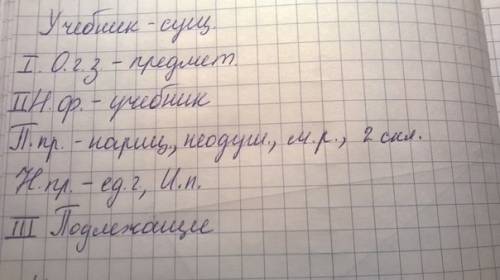 Учебник - сущ.
I. О.г.з - предмет.
II Н.ф. - учебник
П.пр. - нариц., неодуш., м.р., 2 скл.
Н.пр. - ед.г, И.п.
III Подлежащие